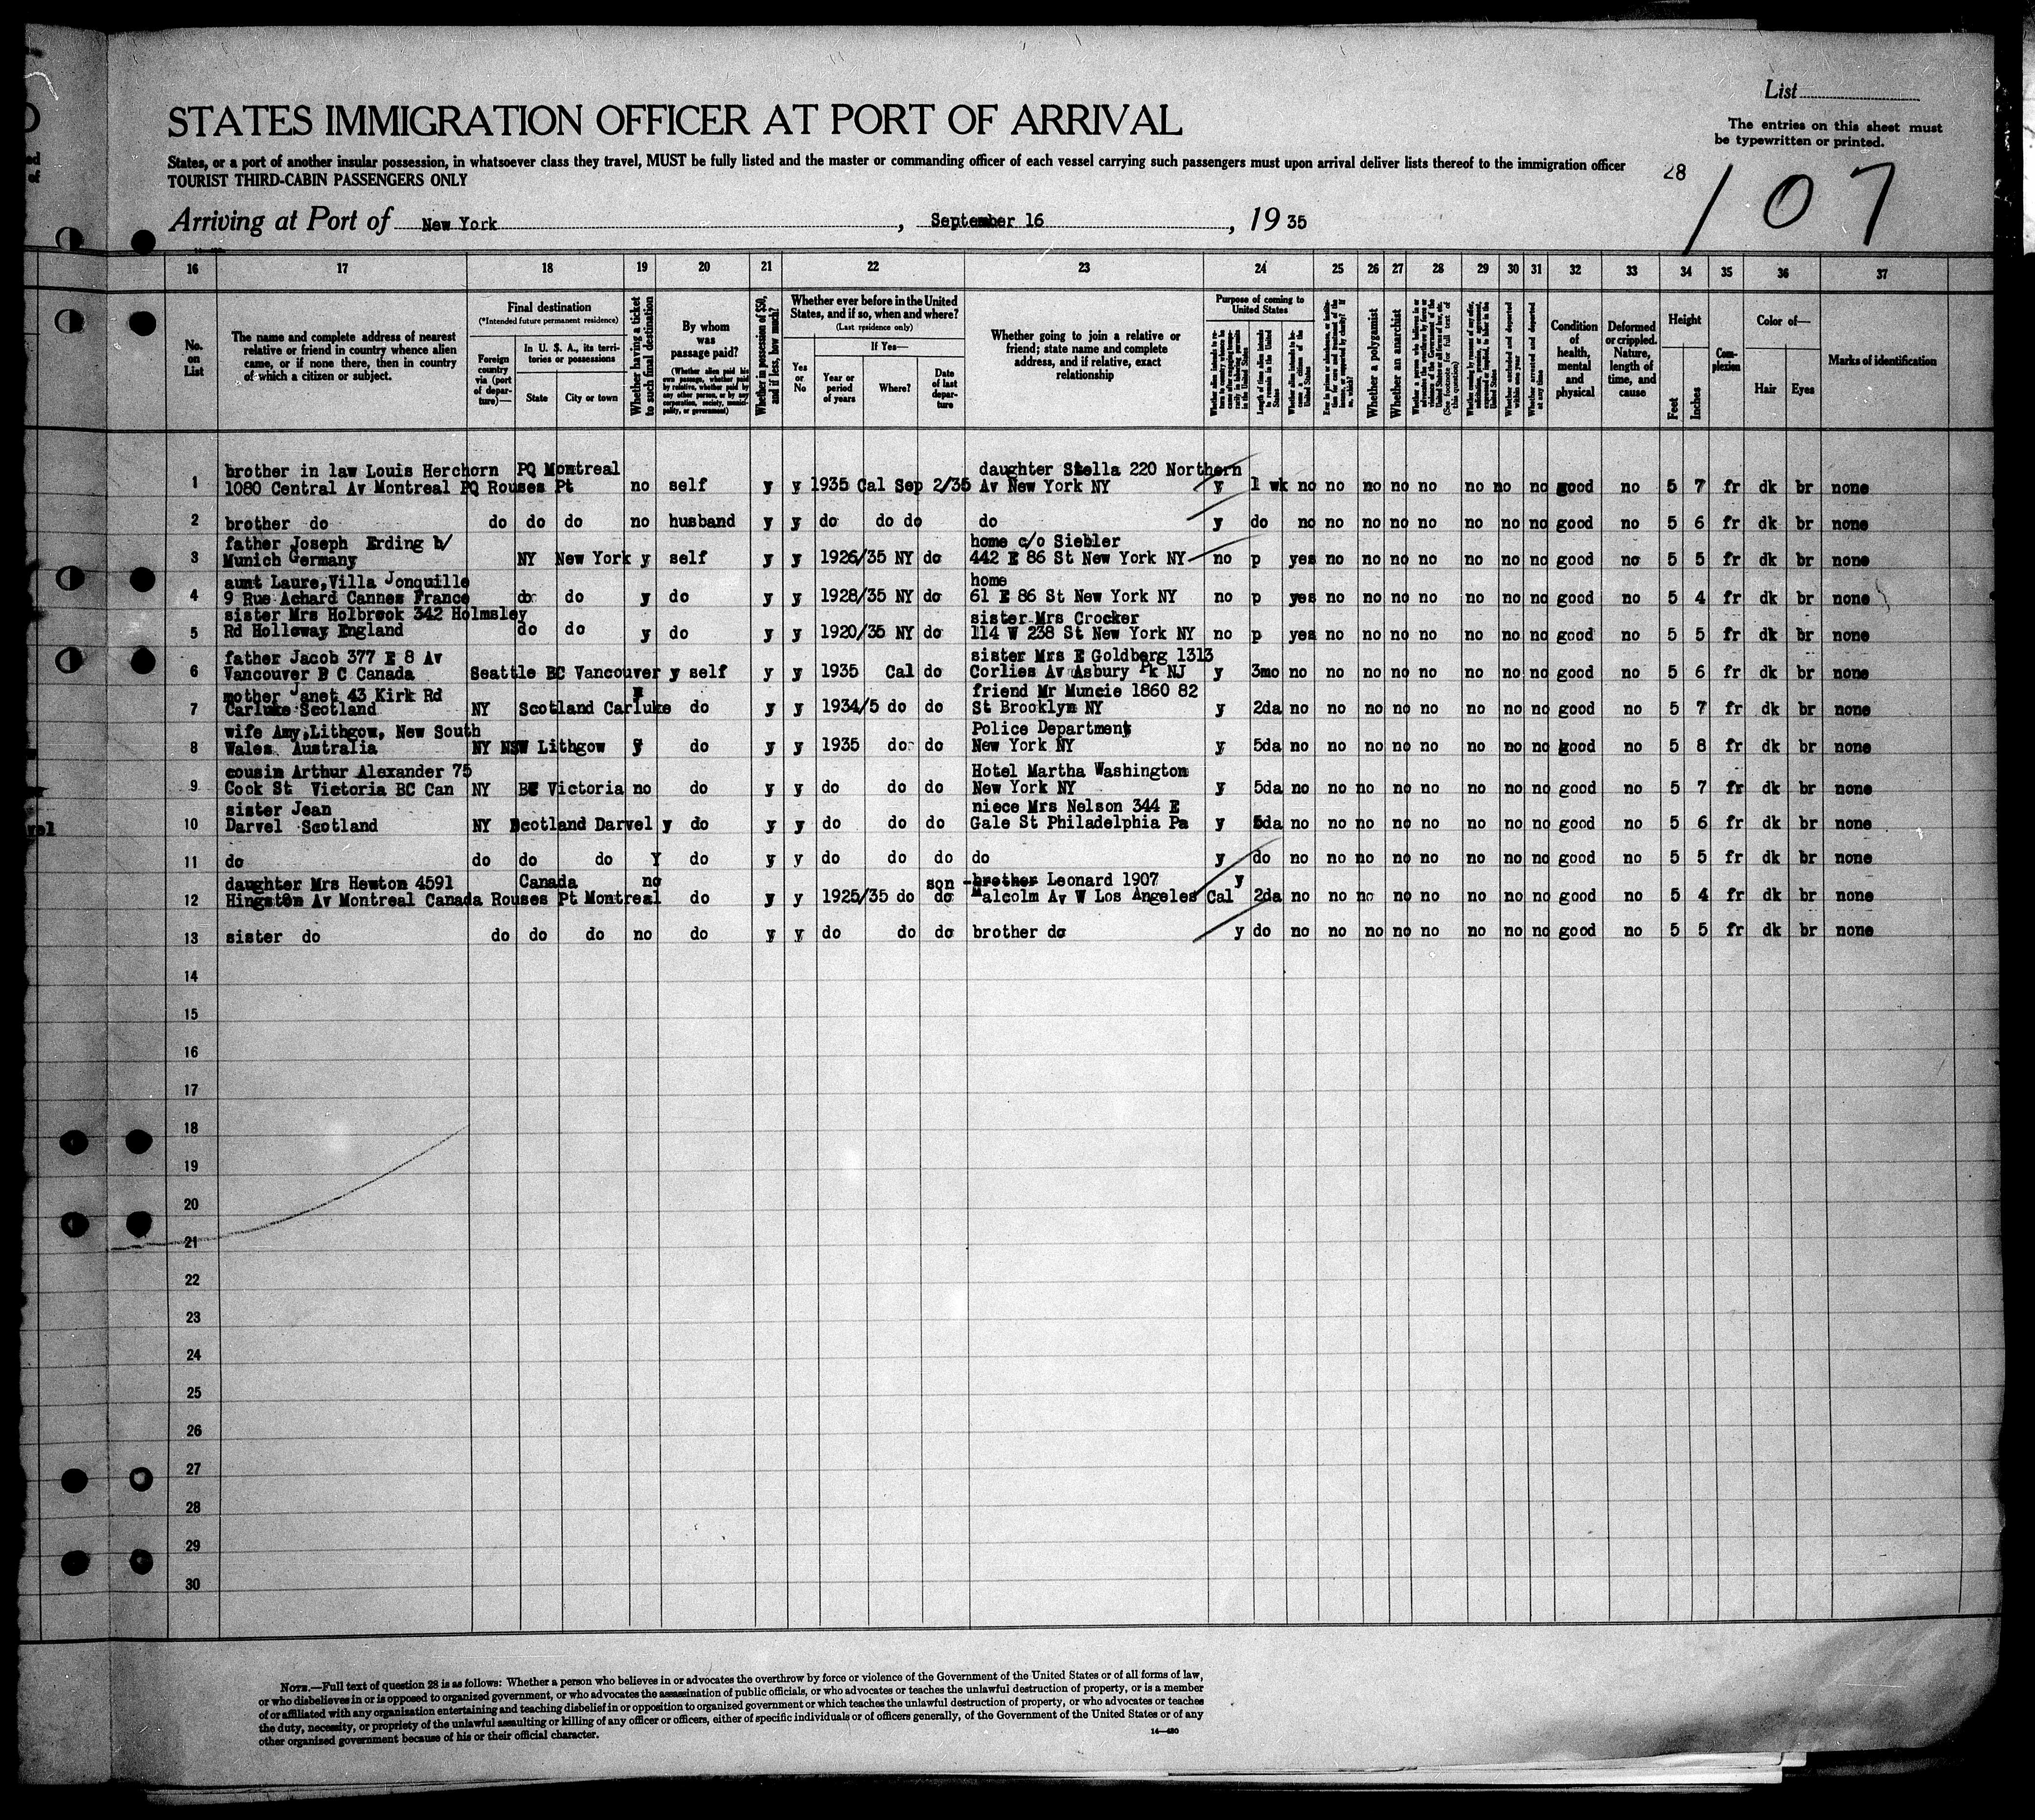 List
The entries on this sheet must
be typewritten or printed.
STATES IMMIGRATION OFFICER AT PORT OF ARRIVAL
States, or a port of another insular possession, in whatsoever class they travel, MUST be fully listed and the master or commanding officer of each vessel carrying such passengers must upon arrival deliver lists thereof to the immigration officer
TOURIST THIRD-CABIN PASSENGERS ONLY
28
107
Arriving at Port of New York, September 16, 19 35
16 17 18 19 20 21 22 23 24 25 26 27 28 29 30 31 32 33 34 35 36 37
No. on List
The name and complete address of nearest relative or friend in country whence alien came, or if none there, then in country of which a citizen or subject.
Final destination
(*Intended future permanent residence)
Foreign country via (port of departure)—
In U. S. A., its territories or possessions
State
City or town
Whether having a ticket to such final destination
By whom was passage paid?
(Whether alien paid his own passage, whether paid by relative, whether paid by any other person, or by any corporation, society, municipality, or government)
Whether in possession of $50, and if less, how much?
Whether ever before in the United States, and if so, when and where?
(Last residence only)
Yes or No
If Yes—
Year or period of years
Where?
Date of last departure
Whether going to join a relative or friend; state name and complete address, and if relative, exact relationship
Purpose of coming to United States
Length of time alien intends to remain in the United States
Whether alien intends to become a citizen of the United States
Whether a polygamist
Whether an anarchist
(See footnote for full text of this question)
Whether excluded and deported within one year
Whether arrested and deported at any time
Condition of health, mental and physical
Deformed or crippled. Nature, length of time, and cause
Height
Feet
Inches
Complexion
Color of—
Hair
Eyes
Marks of identification
brother in law Louis Herchorn PQ Montreal daughter Stella 220 Northern
1 1080 Central Av Montreal PQ Rouses Pt no self y y 1935 Cal Sep 2/35 Av New York NY y 1 wk no no no no no no no no good no 5 7 fr dk br none
2 brother do do do do no husband y y do do do do y do no no no no no no no no good no 5 6 fr dk br none
father Joseph Erding b/ home c/o Siebler
3 Munich Germany NY New York y self y y 1926/35 NY do 442 E 86 St New York NY no p yes no no no no no no no good no 5 5 fr dk br none
aunt Laure, Villa Jonquille home
4 9 Rue Achard Cannes France do do y do y y 1928/35 NY do 61 E 86 St New York NY no p yes no no no no no no no good no 5 4 fr dk br none
sister Mrs Holbrook 342 Holmsley sister Mrs Crocker
5 Rd Holloway England do do y do y y 1920/35 NY do 114 W 238 St New York NY no p yes no no no no no no no good no 5 5 fr dk br none
father Jacob 377 E 8 Av sister Mrs E Goldberg 1313
6 Vancouver B C Canada Seattle BC Vancouver y self y y 1935 Cal do Corlies Av Asbury Pk NJ y 3mo no no no no no no no no good no 5 6 fr dk br none
mother Janet 43 Kirk Rd friend Mr Muncie 1860 82
7 Carluke Scotland NY Scotland Carluke do y y 1934/5 do do St Brooklyn NY y 2da no no no no no no no no good no 5 7 fr dk br none
wife Amy, Lithgow, New South Police Department
8 Wales Australia NY NSW Lithgow y do y y 1935 do do New York NY y 5da no no no no no no no no good no 5 8 fr dk br none
cousin Arthur Alexander 75 Hotel Martha Washington
9 Cook St Victoria BC Can NY BC Victoria no do y y do do do New York NY y 5da no no no no no no no no good no 5 7 fr dk br none
sister Jean niece Mrs Nelson 344 E
10 Darvel Scotland NY Scotland Darvel y do y y do do do Gale St Philadelphia Pa y 5da no no no no no no no no good no 5 6 fr dk br none
11 do do do do Y do y y do do do do y do no no no no no no no no good no 5 5 fr dk br none
daughter Mrs Hewton 4591 Canada no son brother Leonard 1907 y
12 Hingston Av Montreal Canada Rouses Pt Montreal do y y 1925/35 do do Malcolm Av W Los Angeles Cal 2da no no no no no no no no good no 5 4 fr dk br none
13 sister do do do do no do y y do do do brother do y do no no no no no no no no good no 5 5 fr dk br none
14
15
16
17
18
19
20
21
22
23
24
25
26
27
28
29
30
NOTE.—Full text of question 28 is as follows: Whether a person who believes in or advocates the overthrow by force or violence of the Government of the United States or of all forms of law,
or who disbelieves in or is opposed to organized government, or who advocates the assassination of public officials, or who advocates or teaches the unlawful destruction of property, or is a member
of or affiliated with any organization entertaining and teaching disbelief in or opposition to organized government or which teaches the unlawful destruction of property, or who advocates or teaches
the duty, necessity, or propriety of the unlawful assaulting or killing of any officer or officers, either of specific individuals or of officers generally, of the Government of the United States or of any
other organized government because of his or their official character.
14—480